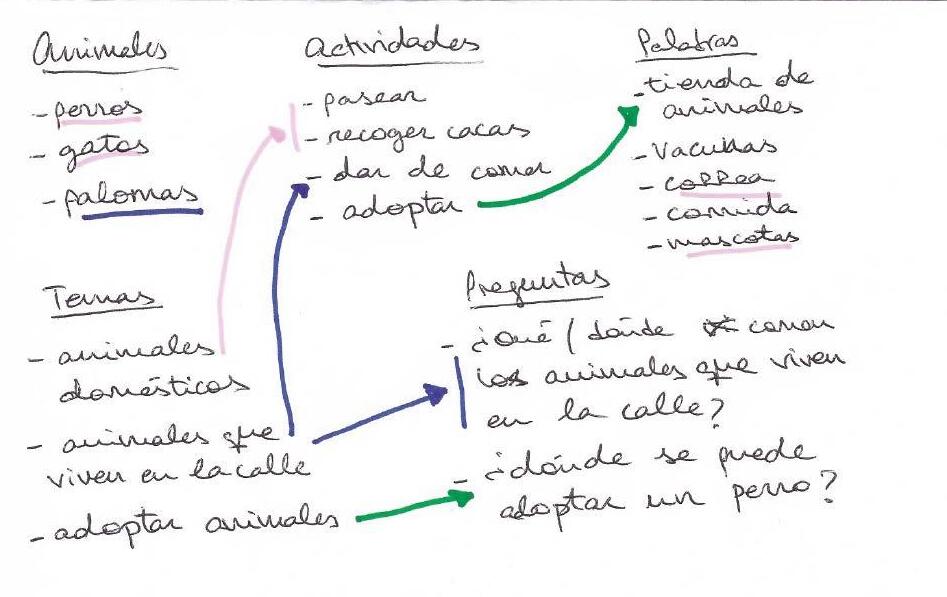 Animales
- perros
- gatos
- palomas
Actividades
- pasear
- recoger cacas
- dar de comer
- adoptar
Palabras
- tienda de
animales
- vacunas
- correa
- comida
- mascotas
Temas
- animales
domésticos
- animales que
viven en la calle
- adoptar animales
Preguntas
- ¿Qué / dónde comen
los animales que viven
en la calle?
- ¿dónde se puede
adoptar un perro?